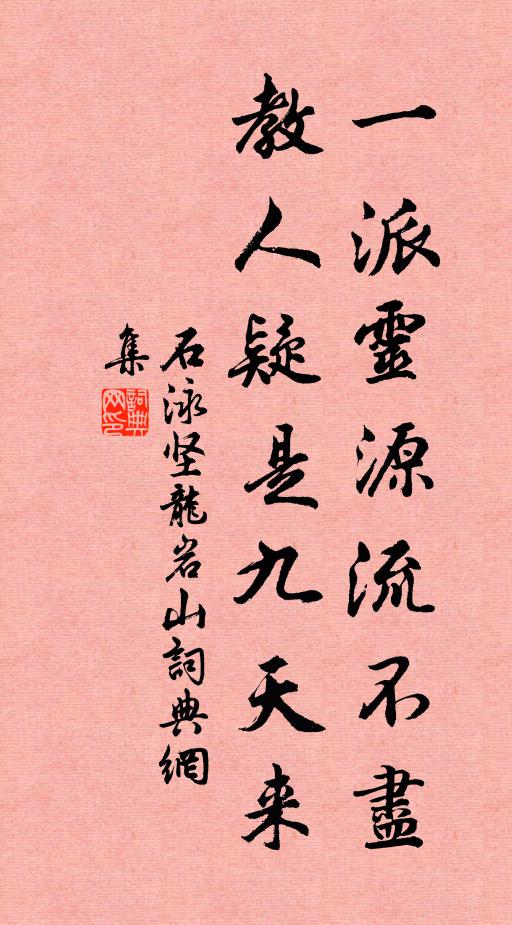 一派靈源流不盡
教人疑是九天来
石泳坚龍岩山詞典網
集
詞典網印